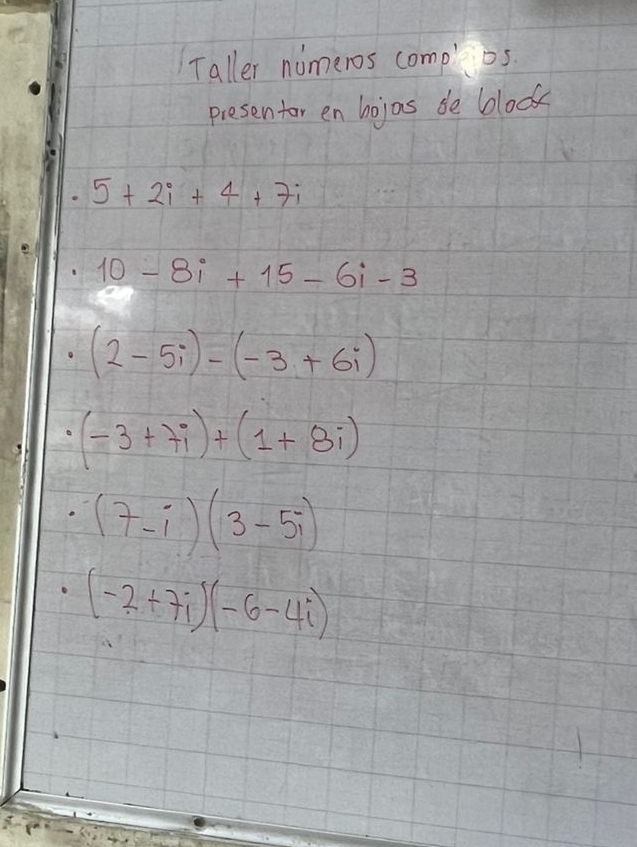 Taller números complejos.
presentar en hojas de block
. 5 + 2i + 4 + 7i
. 10 - 8i + 15 - 6i - 3
. (2 - 5i) - (-3 + 6i)
. (-3 + 7i) + (1 + 8i)
. (7 - i)(3 - 5i)
. (-2 + 7i)(-6 - 4i)